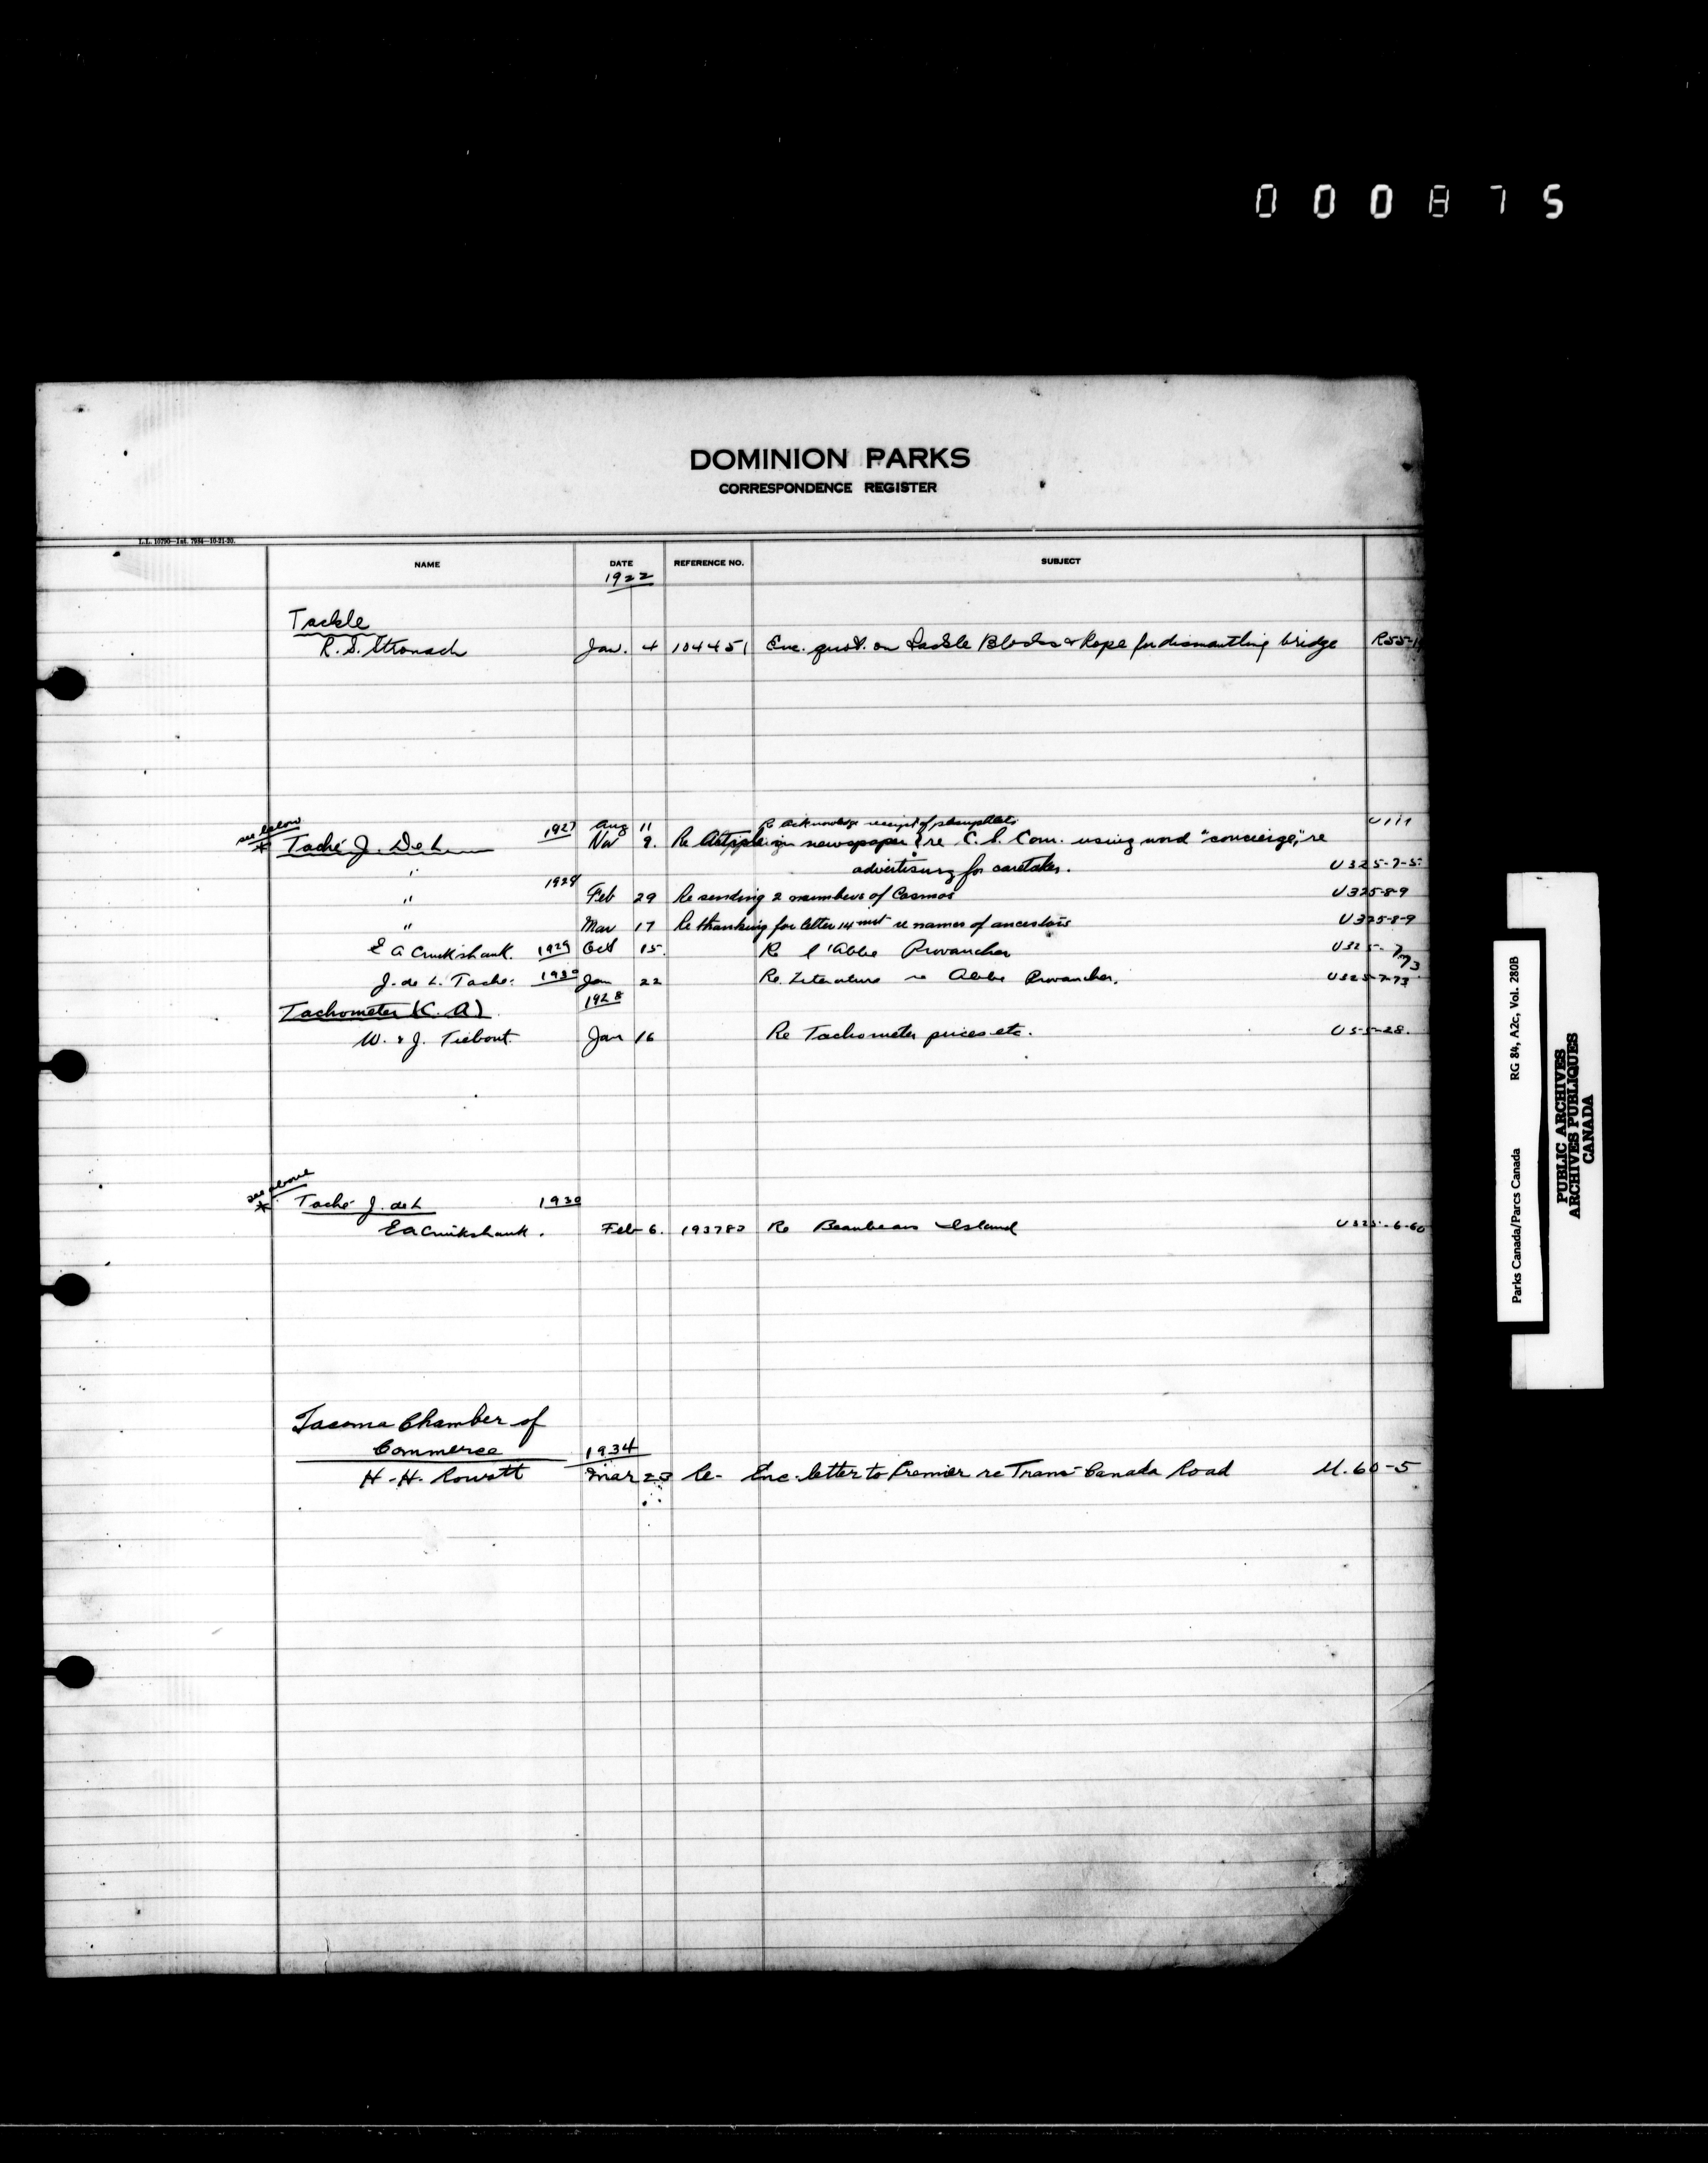 000875
DOMINION PARKS
CORRESPONDENCE REGISTER
L.L. 10790—Int. 7984—10-21-20.
NAME DATE REFERENCE NO. SUBJECT
1922
Tackle
R. S. Stronach Jan. 4 104451 Enc. quot. on Tackle Blocks & Rope for dismantling bridge R55-1
see below
Aug 11 Re acknowledge receipt of pamphlets U111
* Taché J. De L. 1927 Nov 9. Re Article in newspaper re C. S. Com. using word "concierge," re
" advertising for caretaker. U325-7-5
" 1928 Feb 29 Re sending 2 numbers of Cosmos U325-8-9
" Mar 17 Re thanking for letter 14 inst re names of ancestors U325-8-9
E A Cruikshank. 1929 Oct 15. Re l'Abbe Provancher U325-7-73
J. de L. Tache. 1930 Jan 22 Re Literature re Abbe Provancher. U325-7-73
Tachometer (C. A) 1928
W. & J. Tiebout. Jan 16 Re Tachometer prices etc. U5-5-28.
see above
* Taché J. de L 1930
E a Cruikshank. Feb 6. 193782 Re Beaubears Island U325-6-60
Tacoma Chamber of
Commerce 1934
H. H. Rowatt Mar 23 Re- Enc. letter to Premier re Trans-Canada Road U.60-5
Parks Canada/Parcs Canada RG 84, A2c, Vol. 280B
PUBLIC ARCHIVES
ARCHIVES PUBLIQUES
CANADA